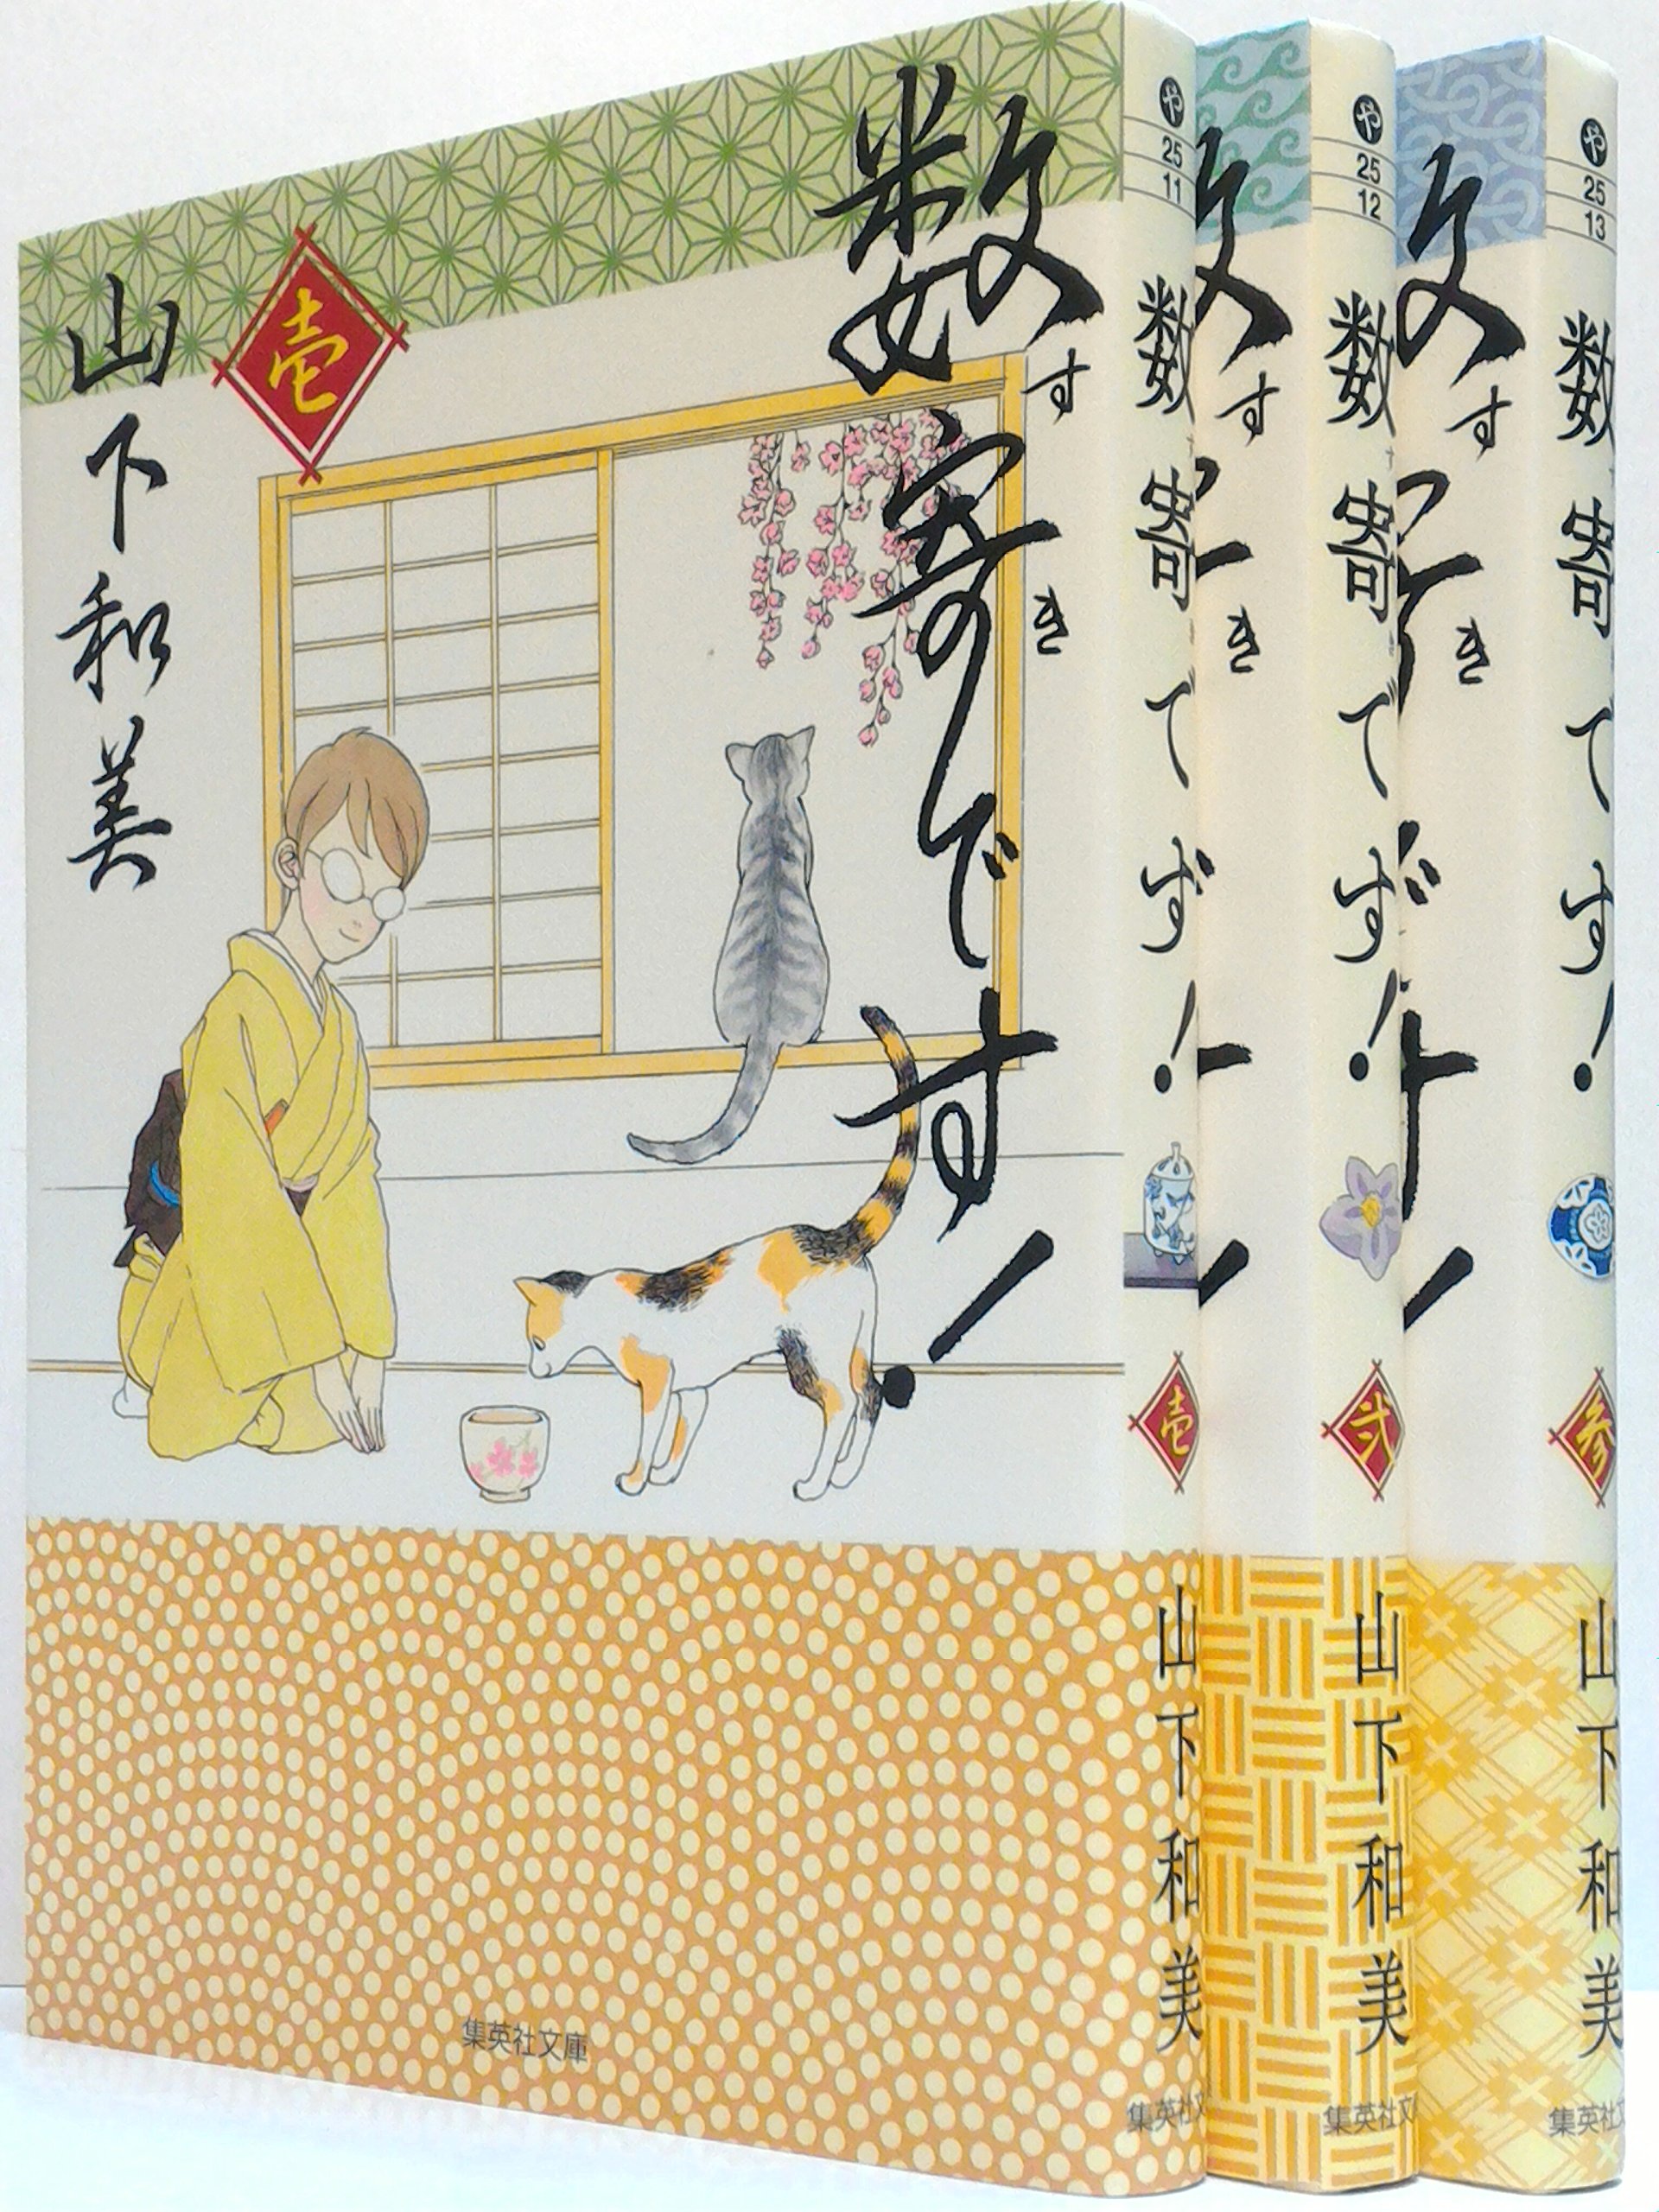 数寄です!
すき
壱
山下和美
集英社文庫
や
25
11
数寄です!
壱
山下和美
集英社文
す
き
や
25
12
数寄です!
弐
山下和美
集英社文
す
き
や
25
13
数寄です!
参
山下和美
集英社